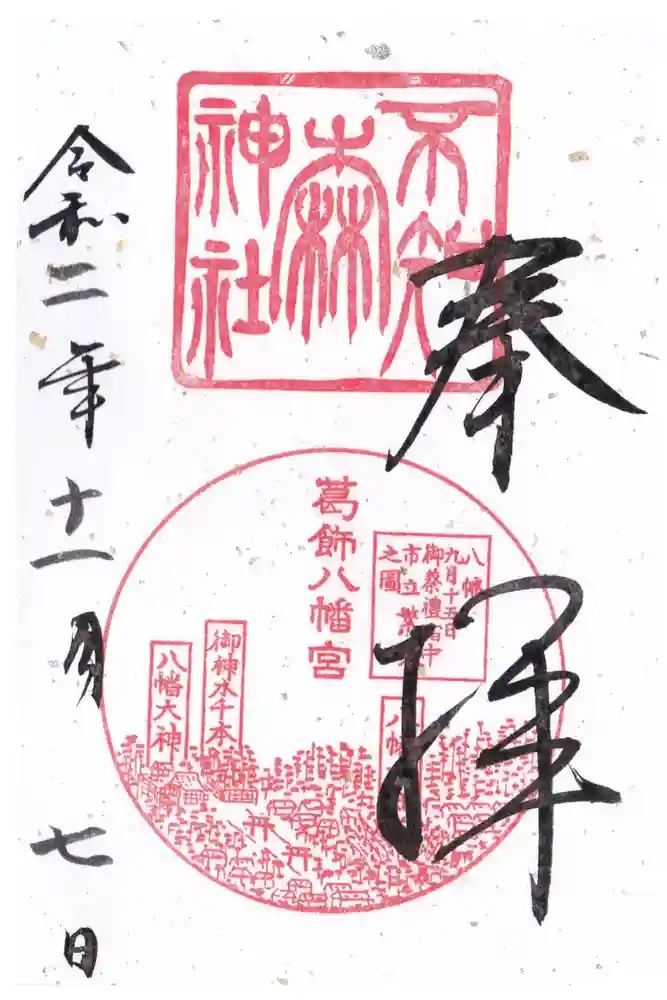 奉拝
不知
森
神社
葛飾八幡宮
八幡
九月十五日
御祭禮
市立
之圖
御神木千本
八幡大神
八幡
令和二年十一月七日